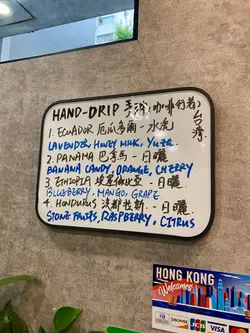 HAND-DRIP 手沖 (咖啡行者) 台灣
1. ECUADOR 厄瓜多爾 - 水處
LAVENDER, HONEY MILK, YUZU
2. PANAMA 巴拿馬 - 日曬
BANANA CANDY, ORANGE, CHERRY
3. ETHIOPIA 埃塞俄比亞 - 日曬
BLUEBERRY, MANGO, GRAPE
4. HONDURUS 洪都拉斯 - 日曬
STONE FRUITS, RASPBERRY, CITRUS
HONG KONG
Welcomes
DISCOVER
JCB